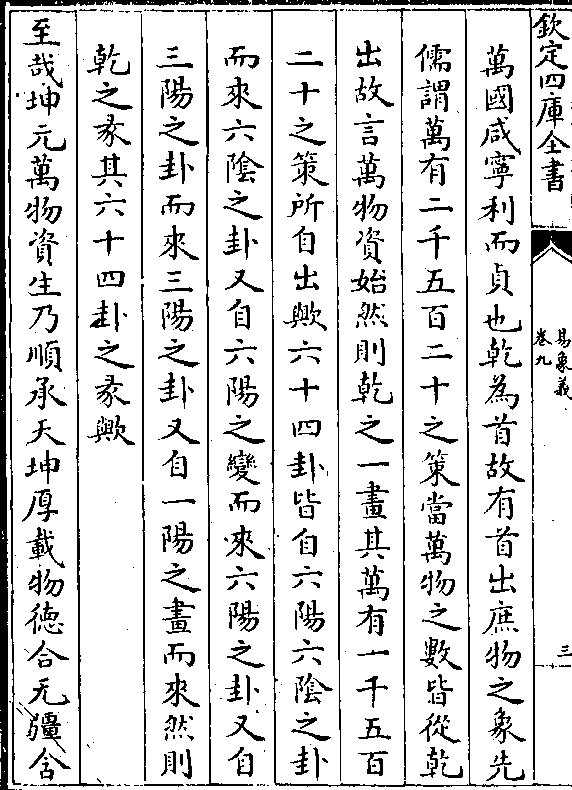 欽定四庫全書
易象義
卷九
三
萬國咸寧利而貞也乾為首故有首出庶物之象先
儒謂萬有二千五百二十之策當萬物之數皆從乾
出故言萬物資始然則乾之一畫其萬有一千五百
二十之策所自出歟六十四卦皆自六陽六陰之卦
而來六陰之卦又自六陽之變而來六陽之卦又自
三陽之卦而來三陽之卦又自一陽之畫而來然則
乾之彖其六十四卦之彖歟
至哉坤元萬物資生乃順承天坤厚載物德合无疆含